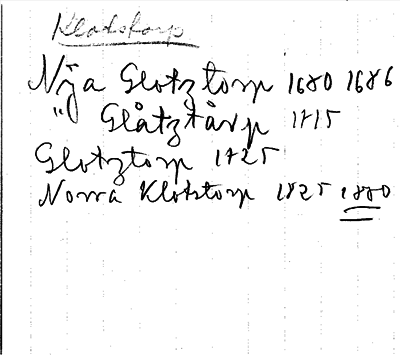 Klotstorp
Nÿa Glotztorp 1680 1686
" Glåtztårp 1715
Glotztorp 1725
Norra Klotstorp 1825 1880